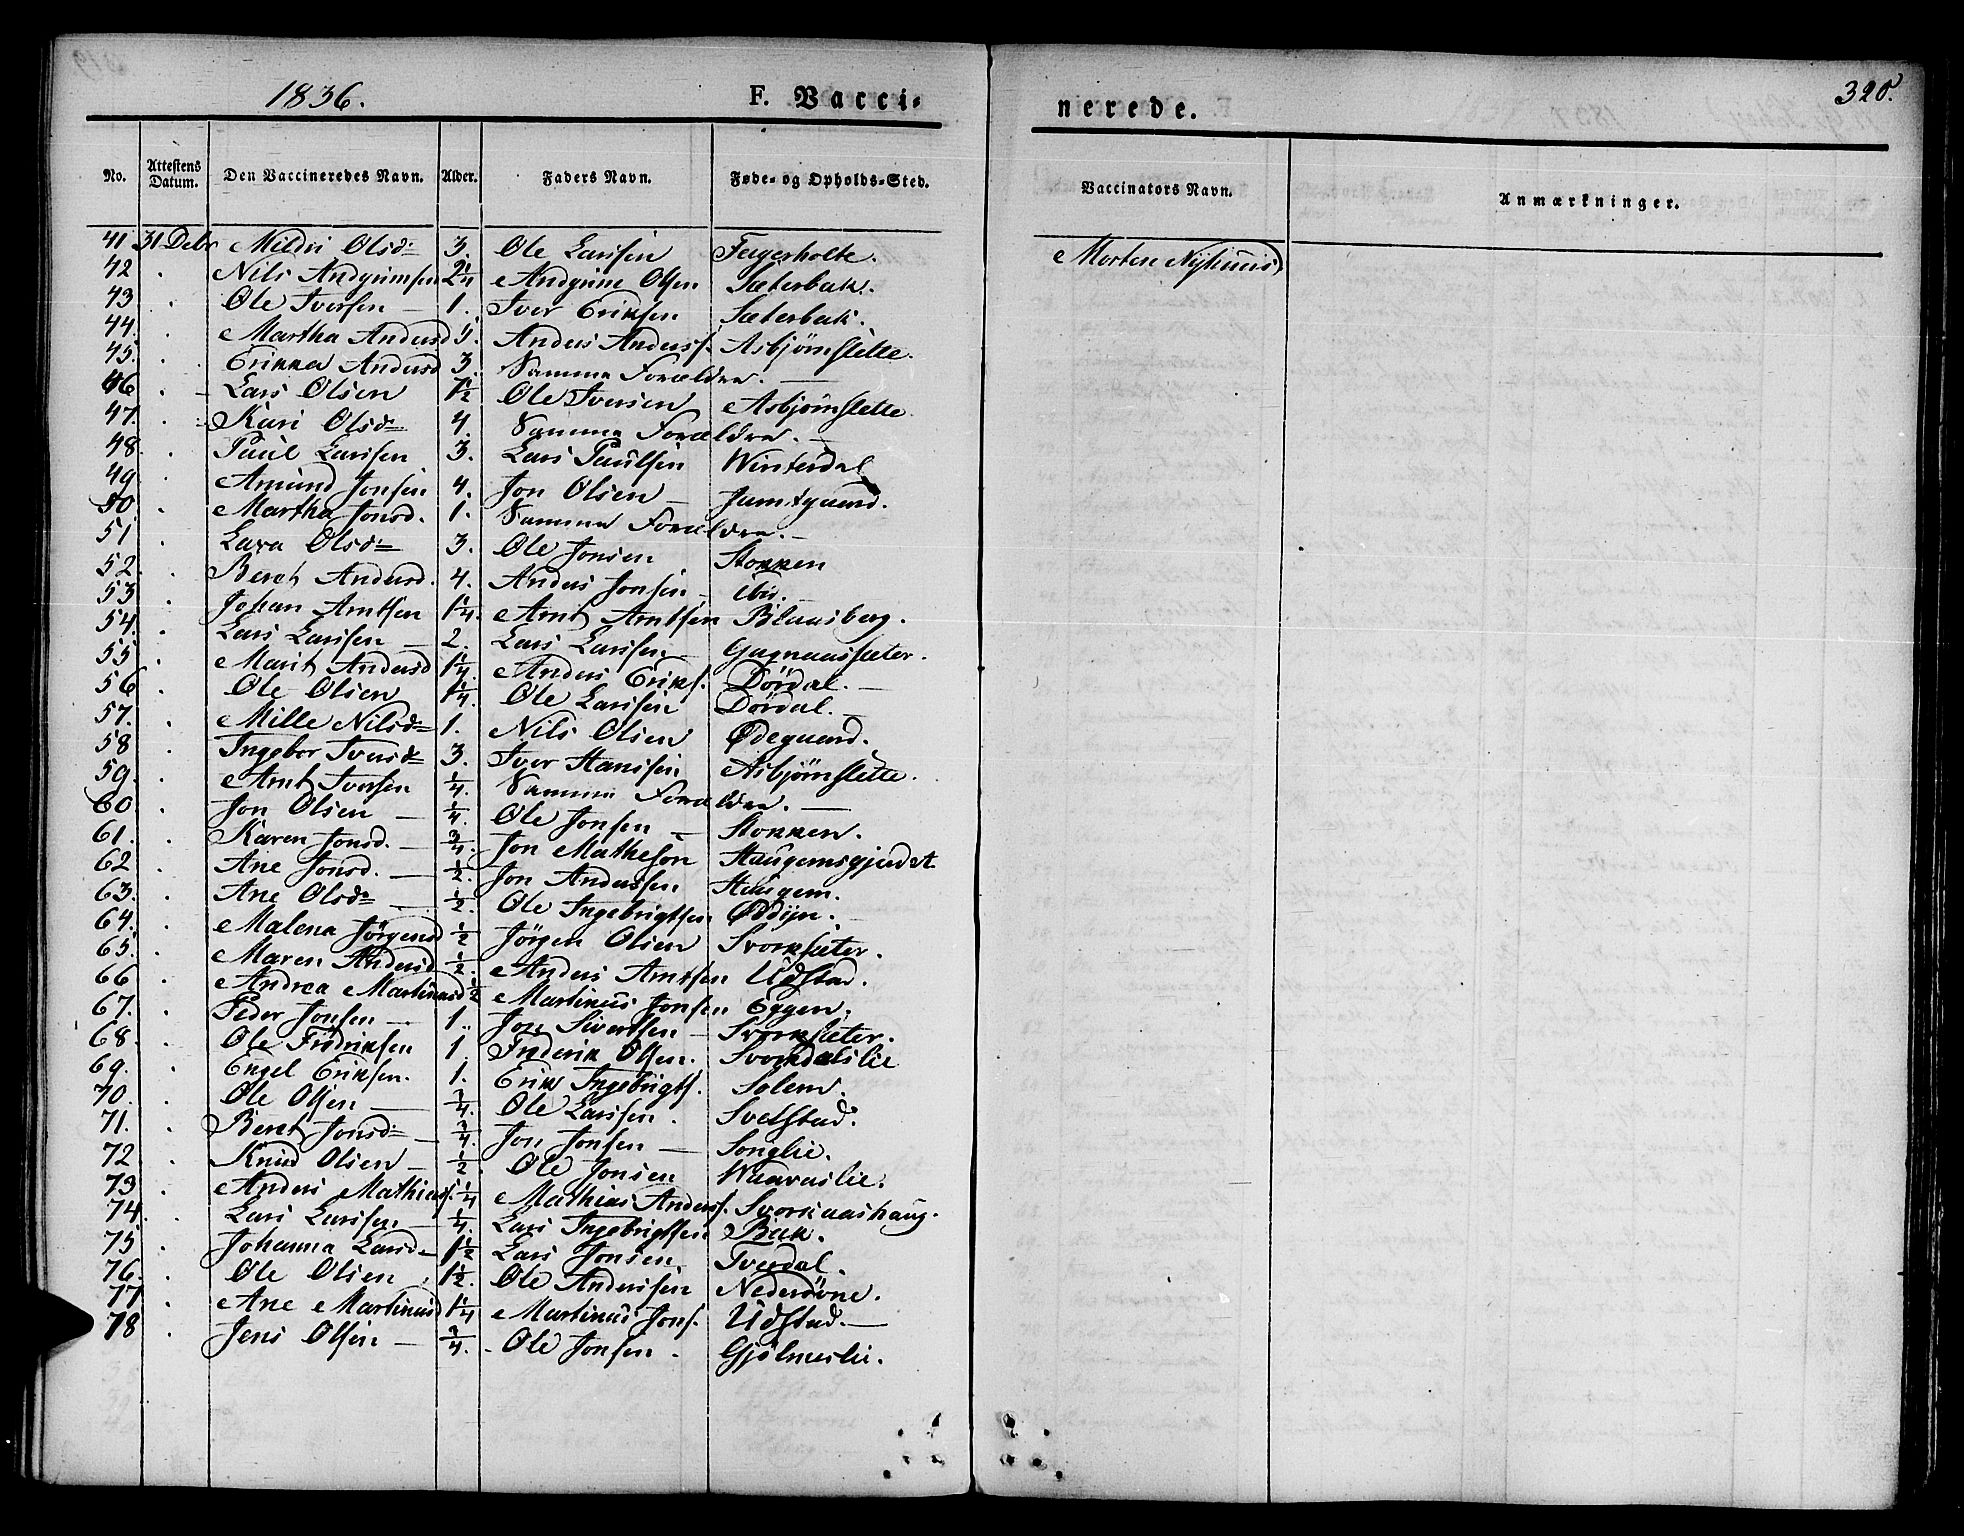 1836.
F. Vacci-
nerede.
320.
No. Attestens Datum. Den Vaccineredes Navn. Alder. Faders Navn. Føde- og Opholds-Sted. Vaccinators Navn. Anmærkninger.
41 31 Debr Mildri Olsd= 3. Ole Larssen Fagerholte. Morten Nyhuus
42 Nils Andgrimsen 2 1/4 Andgrim Olsen Sæterbak.
43 Ole Iversen 1. Iver Eriksen Sæterbak.
44. Martha Andersd Anders Anderss. Asbjørnslette.
45. Erikka Andersd 3. Samma Forældra.
46 Lars Olsen 1 1/2 Ole Iversen Asbjørnslette.
47. Kari Olsd= 4. Samma Forældra.
48. Paul Larssen 3. Lars Paulsen Winterdal
49. Amund Jonsen 4. Jon Olsen Jamtgaard.
50 Martha Jonsd. 1. Samma Forældra.
51 Olsd= 3. Ole Jonsen Stokken
52. Beret Andersd. 4. Anders Jonsen ibid.
53 Johan Arntsen 1 1/4. Arnt Arntsen Blaasberg.
54. Lars Larssen 2. Lars Larssen Gagnaassæter.
55 Marit Andersd 1 1/4. Anders Eriks. Dördal.
56. Ole Olsen 1 1/4. Ole Larssen Dördal.
57. Mille Nilsd= 1. Nils Olsen Ødegaard.
58 Ingebor Iversd= 3. Iver Hanssen Asbjørnslette.
59. Arnt Iversen 1/4. Samma Forældra.
60. Jon Olsen 1/4. Ole Jonsen Stokken.
61. Karen Jonsd. 3/4. Jon Matheson Haugemsgjerdet
62 Ane Jonsd. 1/2. Jon Anderssen Haugem.
63. Ane Olsd= 1/2. Ole Ingebrigtsen
64. Malena Jörgensd 1/2 Jörgen Olsen Svorksæter.
65. Maren Andersd 1/2. Anders Arntsen Udstad.
66 Andrea Martinusd 1/2 Martinus Jonsen Eggen.
67. Peder Jonsen 1. Jon Sivertsen Svorksæter.
68. Ole Fridriksen 1 Frederik Olsen. Svorkdalslie
69. Engel Eriksen. 1. Erik Ingebrigts. Solem.
70. Ole Olsen 3/4. Ole Larssen. Svedstad.
71. Beret Jonsd= 3/4. Jon Jonsen Songlie.
72 Knud Olsen 1/2. Ole Jonsen Waavaslie.
73. Anders Mathiass. 1/4 Mathias Anderss. Svorkaashaug.
74. Lars Larssen 1/4. Lars Ingebrigtsen Bak.
75. Johanna Larsd= 1 1/2 Lars Jonsen. Tvedal.
76. Ole Olsen 1 1/2. Ole Anderssen Nederdöne.
77 Ane Martinusd 1 1/4 Martinus Jons. Udstad.
78 Jens Olsen 3/4. Ole Jonsen. Gjølmeslie.